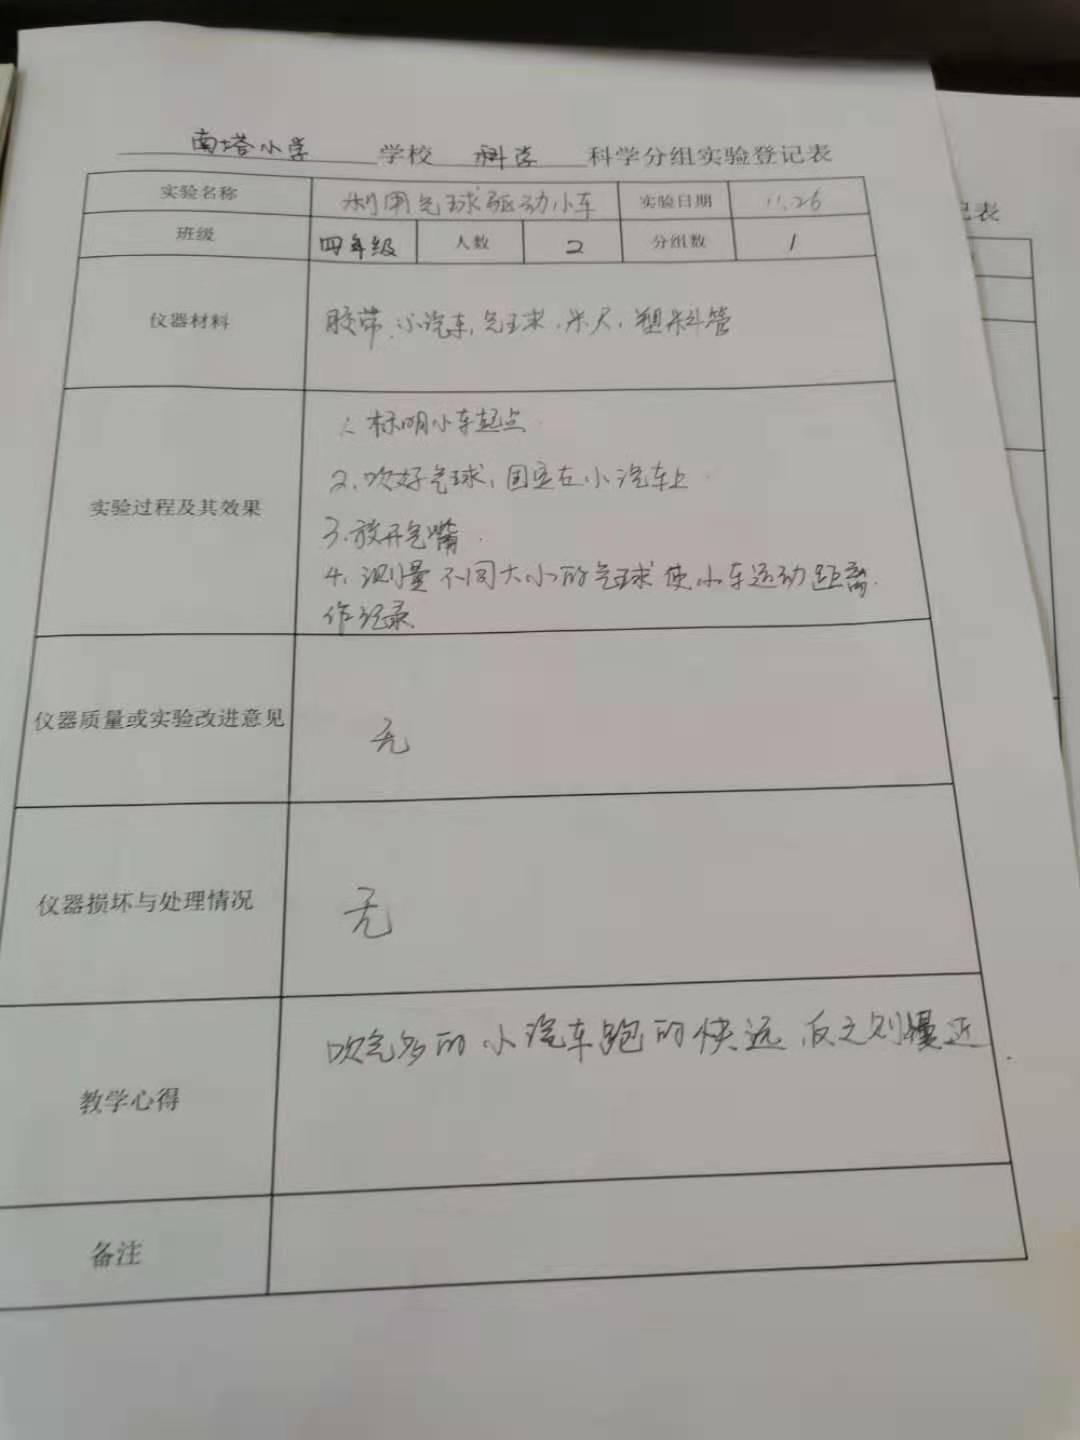 南塔小学 学校 科学 科学分组实验登记表
实验名称 利用气球驱动小车 实验日期 11.26
班级 四年级 人数 2 分组数 1
仪器材料 胶带、小汽车,气球、米尺,塑料管
实验过程及其效果
1. 标明小车起点
2. 吹好气球,固定在小汽车上.
3.放开气嘴.
4. 测量不同大小的气球使小车运动距离.
作记录.
仪器质量或实验改进意见 无
仪器损坏与处理情况 无
教学心得 吹气多的小汽车跑的快远,反之则慢近.
备注
记表